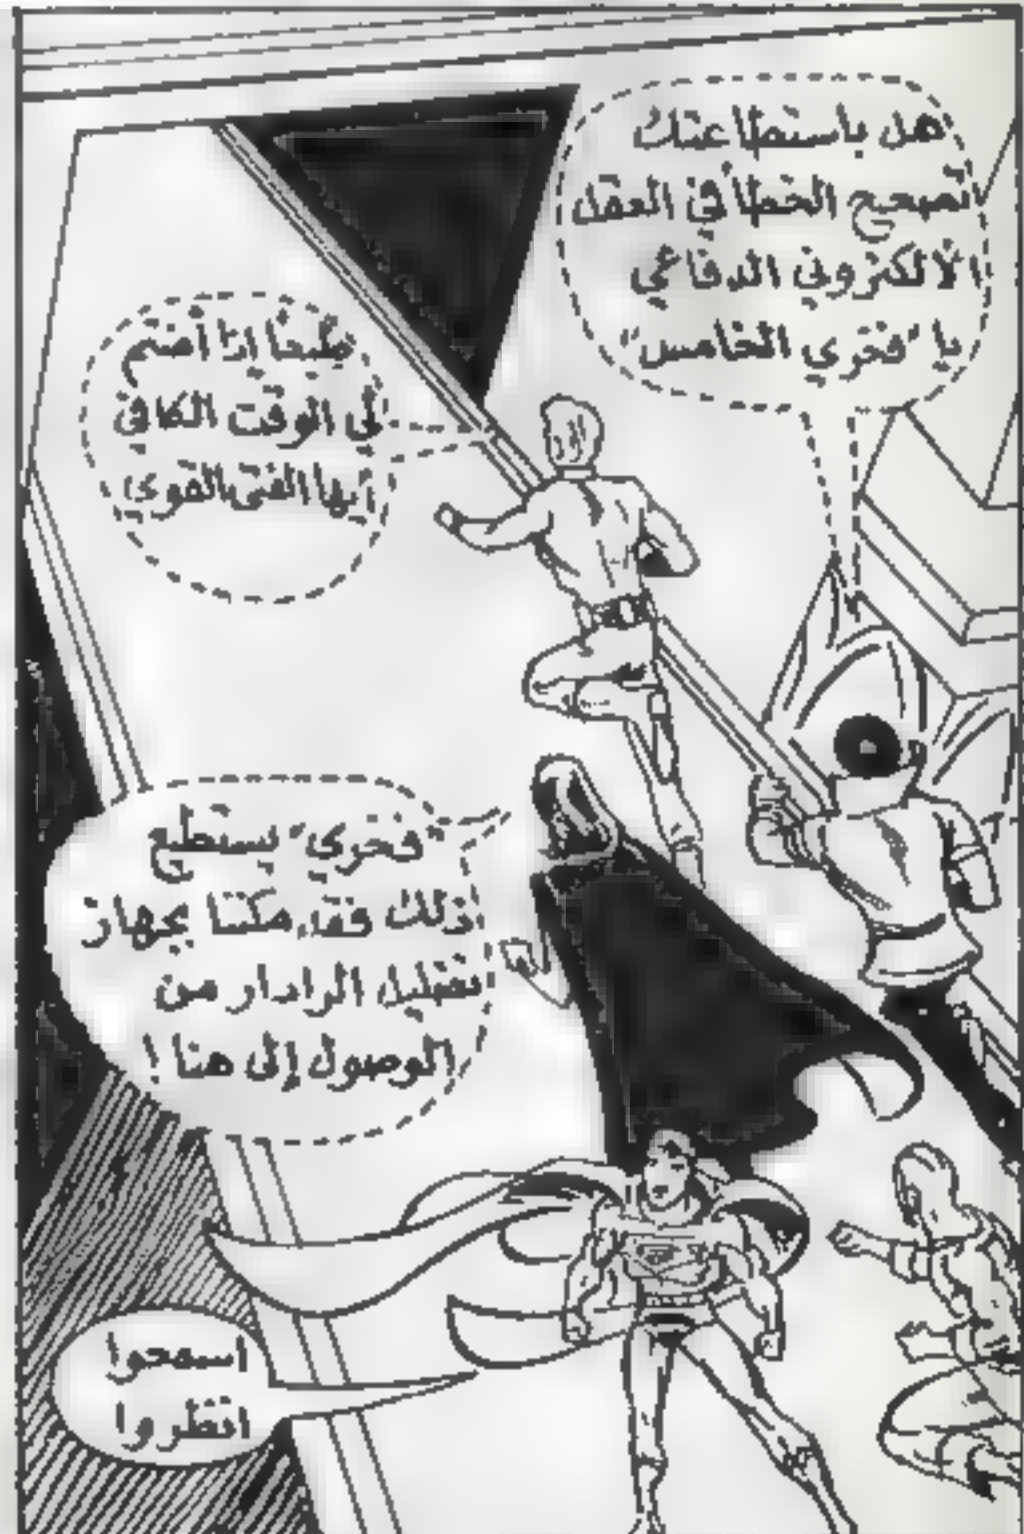 هل باستطاعتك
تصحيح الخطأ في العقل
الألكتروني الدفاعي
يا "فخري الخامس"
طبعًا إذا أعتم
لي الوقت الكافي
أيها الفتى القوي
"فخري" يستطيع
ذلك فقد مكننا بجهاز
تضليل الرادار من
الوصول إلى هنا !
اسمحوا
انظروا